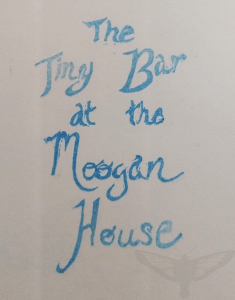 The
Tiny Bar
at the
Moogan
House